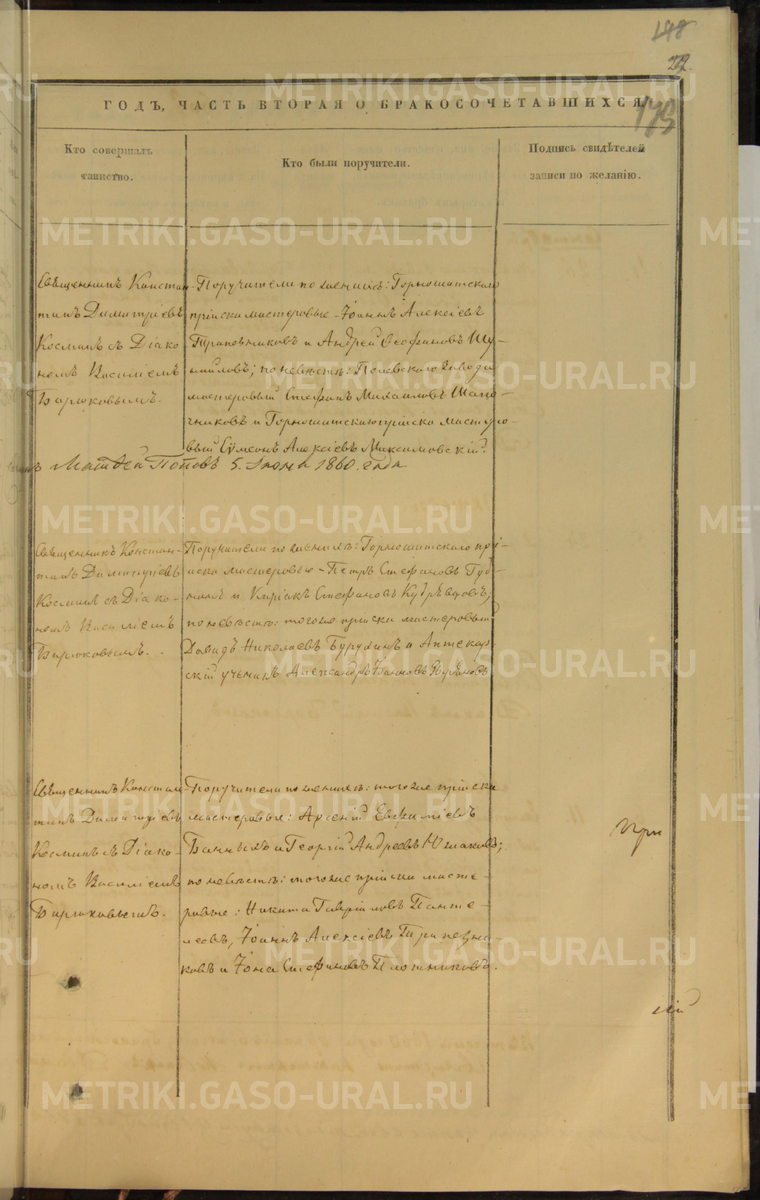 148
22.
175
ГОДЪ, ЧАСТЬ ВТОРАЯ О БРАКОСОЧЕТАВШИХСЯ
Кто совершалъ
таинство.
Кто были поручители.
Подпись свидѣтелей
записи по желанію.
Священникъ Констан-
тинъ Димитріевъ
Косминъ съ Діако-
номъ Василіемъ
Бирюковымъ.
Поручители по женихѣ: Горнощитскаго
пріиска мастеровые Іоаннъ Алексіевъ
и Андрей Ѳеофановъ Шу-
миловъ; по невѣстѣ: Полевскаго завода
мастеровый Стефанъ Михаиловъ Шапо-
чниковъ и Горнощитскаго пріиска мастеро-
вый Сѵмеонъ Алексіевъ Максимовскій.
Матвей Поповъ 5. Іюня 1860. года
Священникъ Констан-
тинъ Димитріевъ
Косминъ съ Діако-
номъ Василіемъ
Бирюковымъ.
Поручители по женихѣ: Горнощитскаго прі-
иска мастеровые Петръ Стефановъ
и Киріакъ Стефановъ Кудрѣвцовъ,
по невѣстѣ: тогоже пріиска мастеровый
Давидъ Николаевъ Бурухинъ и Аптекар-
скій ученикъ Александръ Іоанновъ
Священникъ Констан-
тинъ Димитріевъ
Косминъ съ Діако-
номъ Василіемъ
Бирюковымъ.
Поручители по женихѣ: тогоже пріиска
мастеровые: Арсеній Евѳиміевъ
Банныхъ и Георгій Андреевъ Южаковъ;
по невѣстѣ: тогоже пріиска масте-
ровые: Никита Гавріиловъ Панте-
леевъ, Іоаннъ Алексіевъ
и Іона Стефановъ Плотниковъ.
При
METRIKI.GASO-URAL.RU